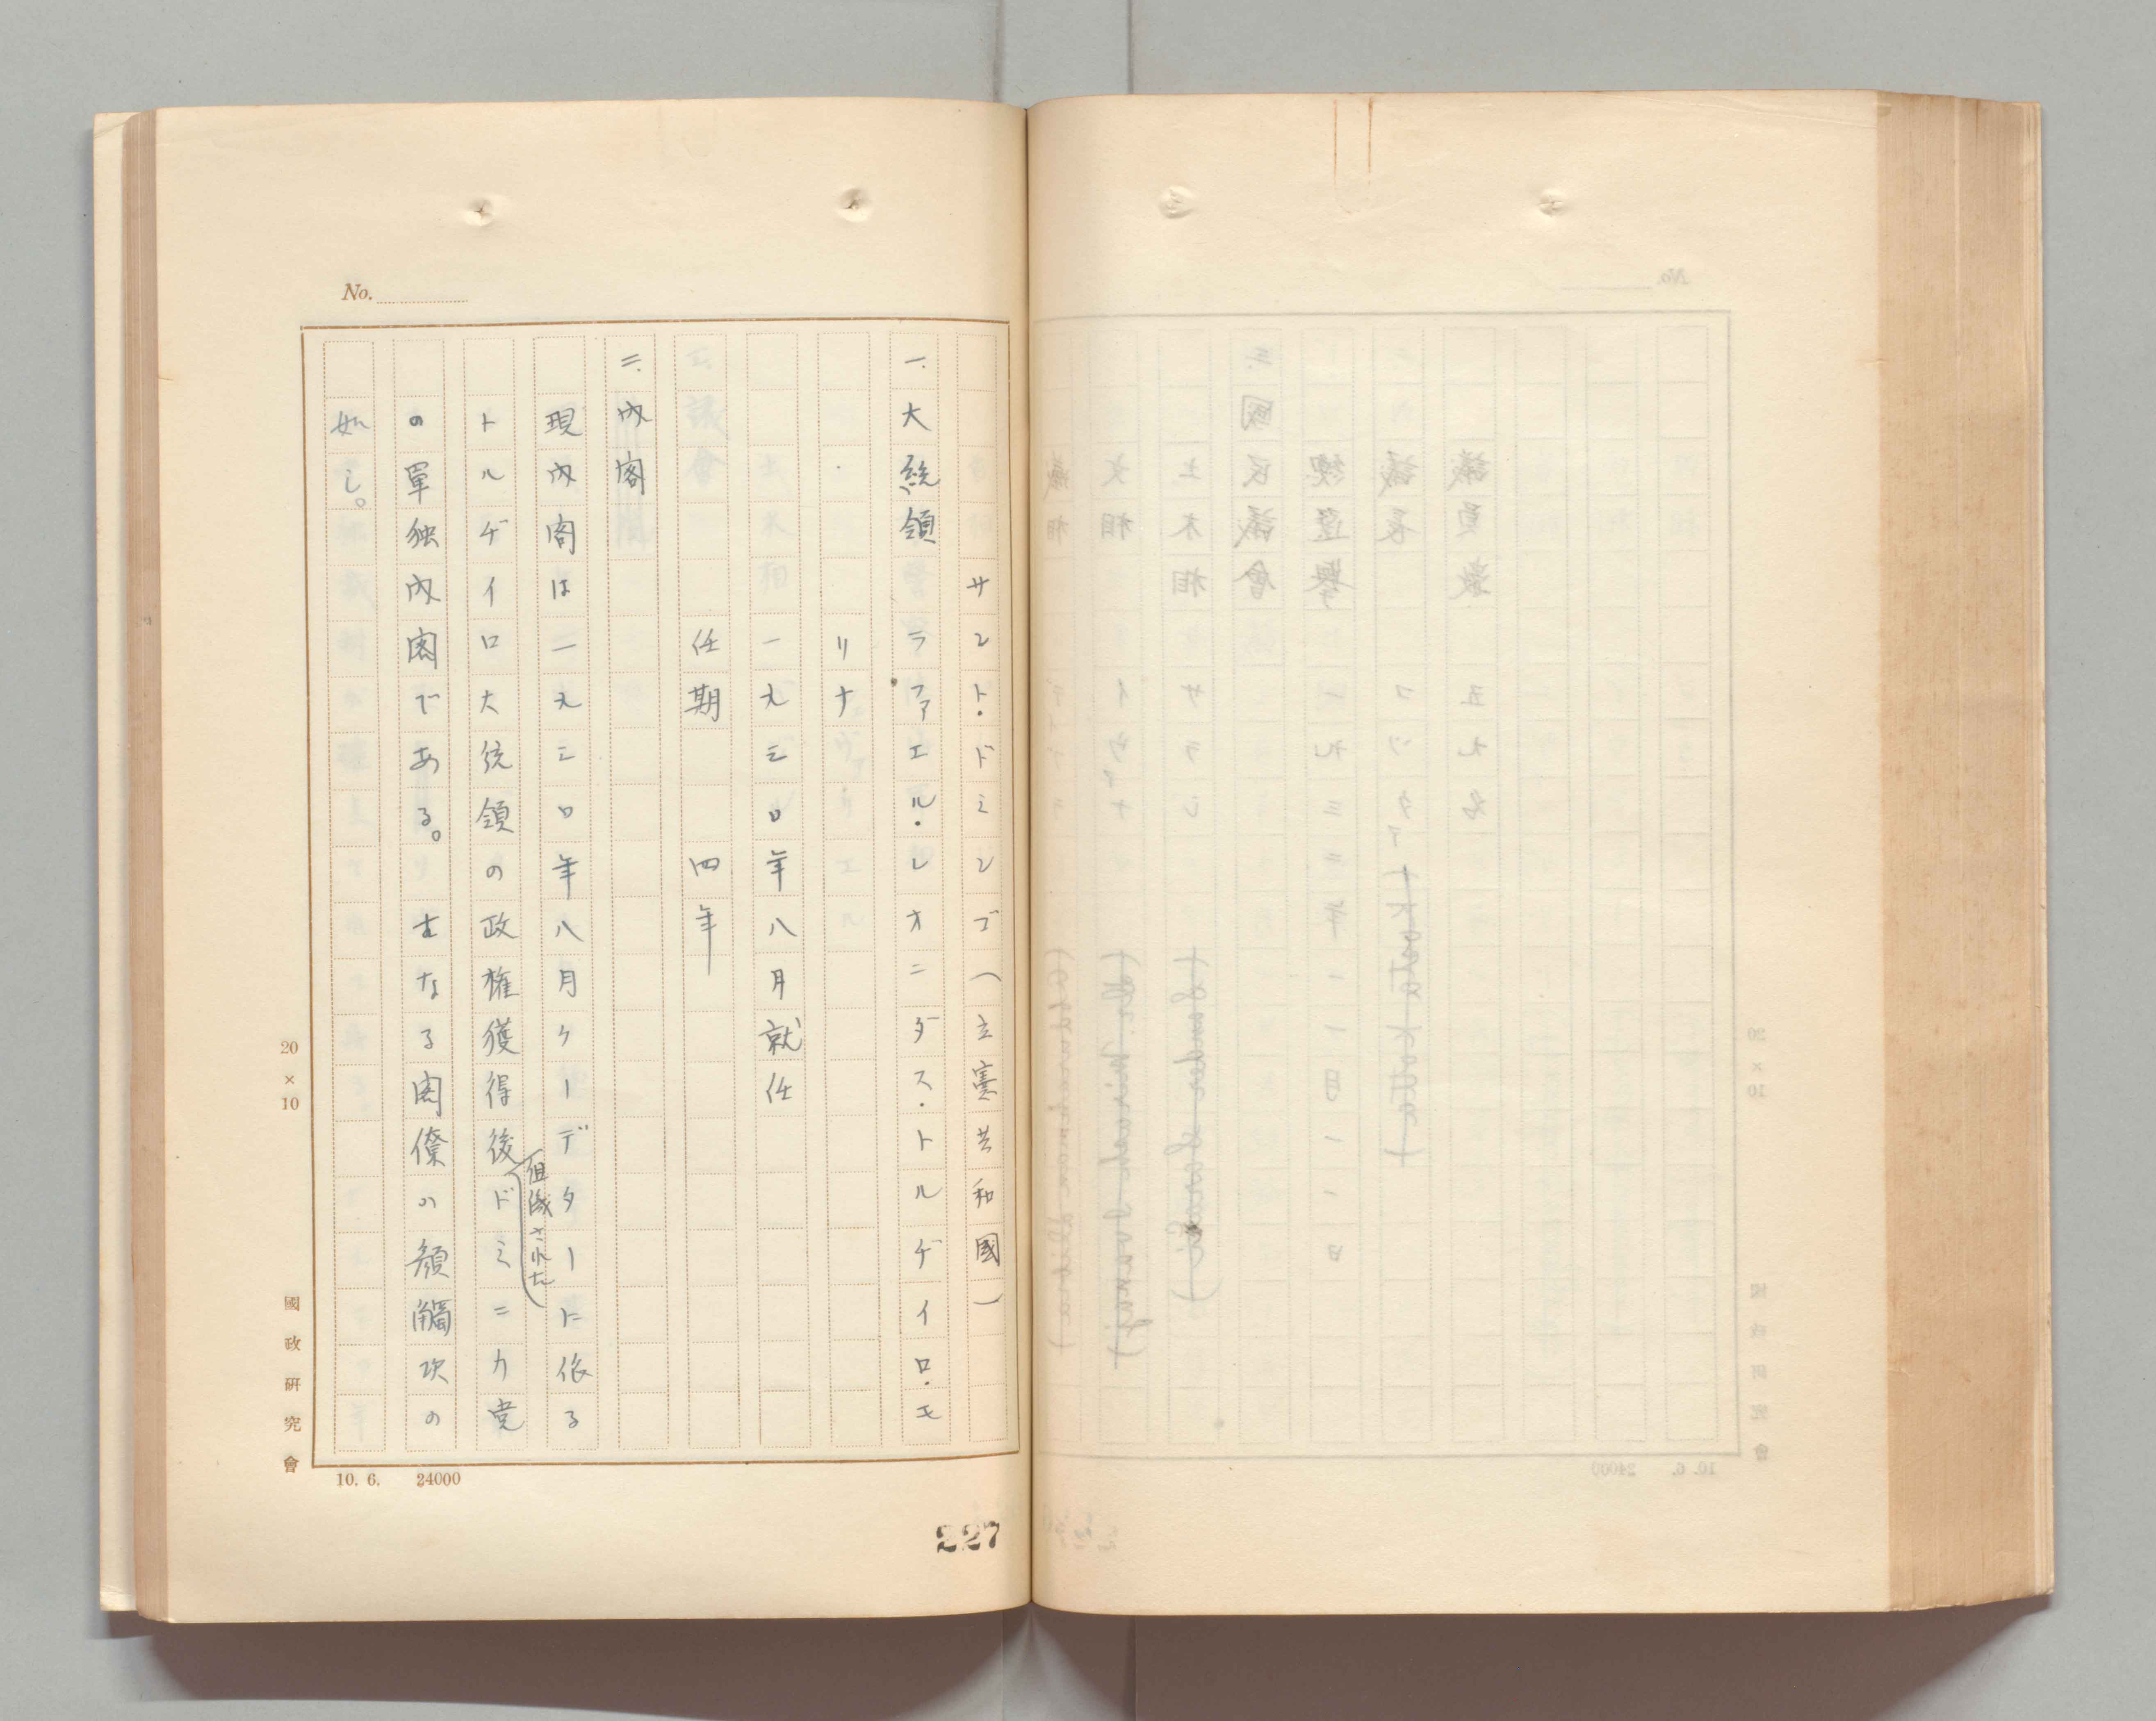 No.
サント・ドミンゴ(立憲共和國)
一.大統領 ラファエル・レオニダス・トルヂイロ・モ
リナ
一九三〇年八月就任
任期 四年
二.内閣
現内閣は一九三〇年八月クーデターに依る
トルヂイロ大統領の政権獲得後組織されたドミニカ党
の単独内閣である。主なる閣僚の顔觸次の
如し。
20×10
國政研究會
10. 6. 24000
227